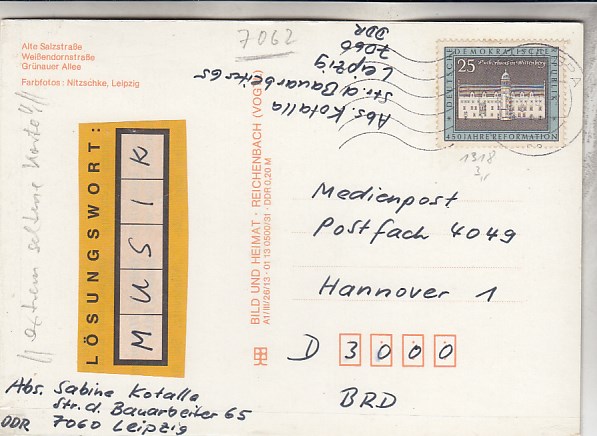 Alte Salzstraße
Weißendornstraße
Grünauer Allee
Farbfotos: Nitzschke, Leipzig
7062
Abs. Kotalla
Str. d. Bauarbeiter 65
Leipzig
7060
DDR
25
DEUTSCHE DEMOKRATISCHE REPUBLIK
450 JAHRE REFORMATION
1318
3,-
// extrem seltene Karte //
LÖSUNGSWORT:
MUSIK
BILD UND HEIMAT · REICHENBACH (VOGTL)
A1/III/26/13 · 01 13 0500/31 · DDR 0,20 M
Medienpost
Postfach 4049
Hannover 1
D 3000
BRD
Abs. Sabine Kotalla
Str. d. Bauarbeiter 65
DDR 7060 Leipzig